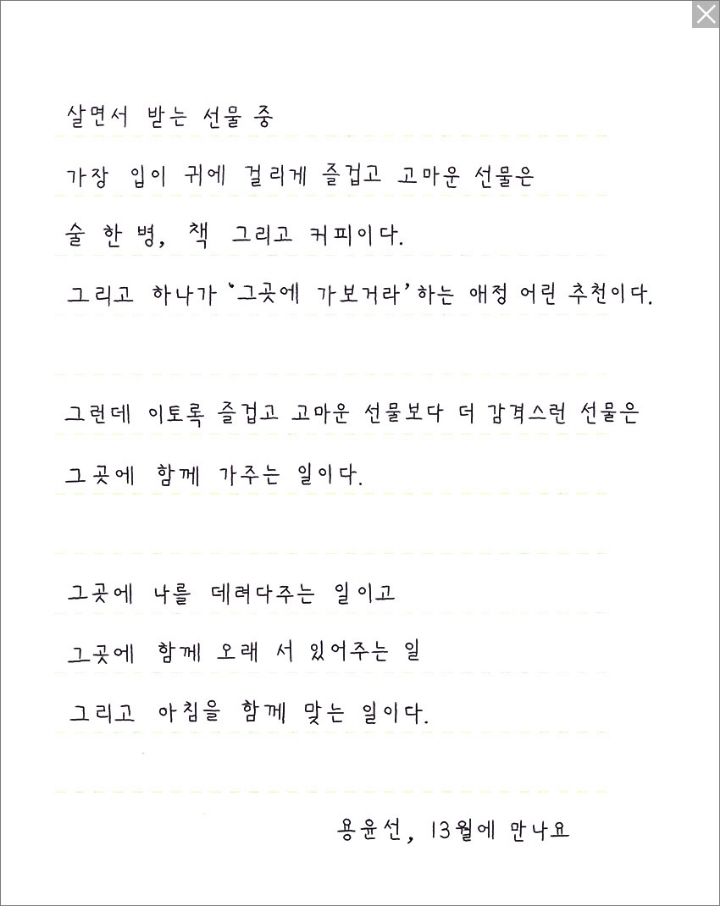 살면서 받는 선물 중
가장 입이 귀에 걸리게 즐겁고 고마운 선물은
술 한 병, 책 그리고 커피이다.
그리고 하나가 '그곳에 가보거라' 하는 애정 어린 추천이다.
그런데 이토록 즐겁고 고마운 선물보다 더 감격스런 선물은
그곳에 함께 가주는 일이다.
그곳에 나를 데려다주는 일이고
그곳에 함께 오래 서 있어주는 일
그리고 아침을 함께 맞는 일이다.
용윤선, 13월에 만나요